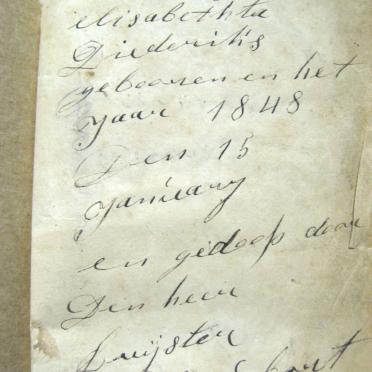 elisabethta
Diederik's
gebooren en het
yaar 1848
Den 15
yanuary
en gedoop door
Den heer